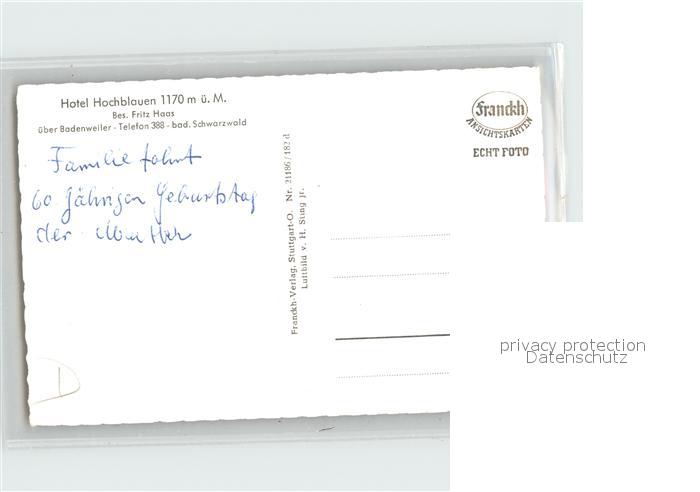 Hotel Hochblauen 1170 m ü. M.
Bes. Fritz Haas
über Badenweiler - Telefon 388 - bad. Schwarzwald
Familie fahrt
60 Jährigen Geburtstag
der Mutter
Franckh-Verlag, Stuttgart-O. Nr. 21186/182 d
Luftbild v. H. Sting jr.
Franckh
ANSICHTSKARTEN
ECHT FOTO
privacy protection
Datenschutz